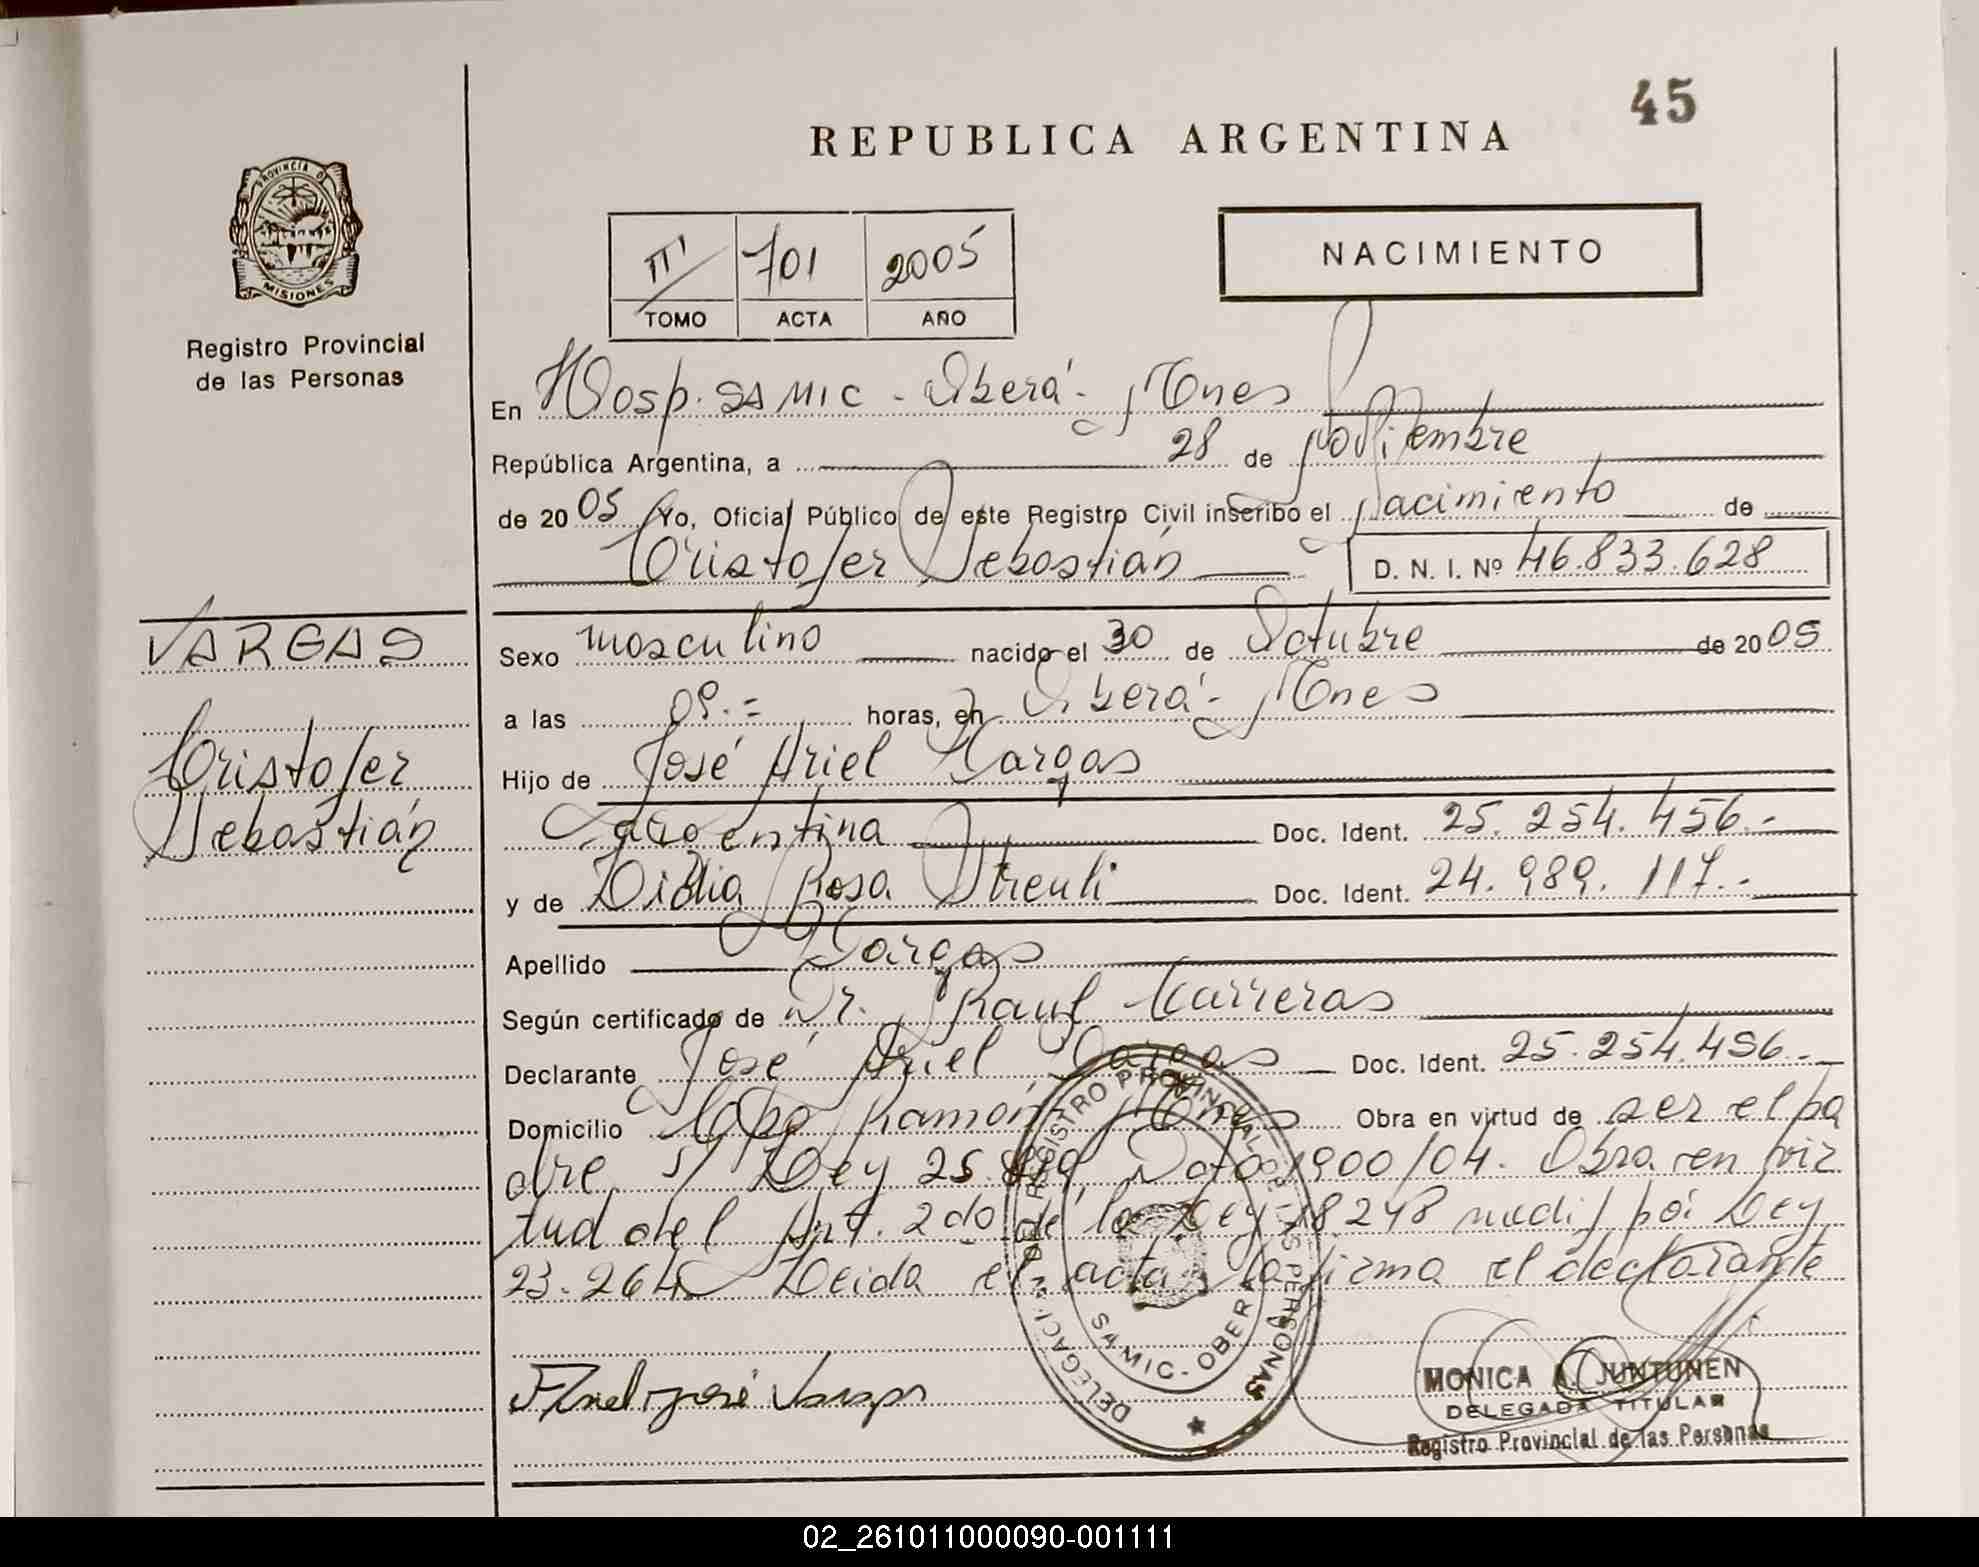 45
REPUBLICA ARGENTINA
PROVINCIA DE
MISIONES
Registro Provincial
de las Personas
701 2005
TOMO ACTA AÑO
NACIMIENTO
En Hosp. SAMIC - Oberá - Mnes
República Argentina, a 28 de Noviembre
de 2005 Yo, Oficial Público de este Registro Civil inscribo el nacimiento de
Cristofer Sebastián D. N. I. Nº 46.833.628
VARGAS
Cristofer
Sebastián
Sexo masculino nacido el 30 de Octubre de 2005
a las horas, en Oberá - Mnes
Hijo de José Ariel Vargas
Argentina Doc. Ident. 25.254.456.-
y de Rosa Doc. Ident. 24.989.117.-
Apellido Vargas
Según certificado de Dr. Raul Carreras
Declarante José Ariel Vargas Doc. Ident. 25.254.456.-
Domicilio Ramón Mnes Obra en virtud de ser el pa
dre s/ Ley Dcto 1900/04. Obra en vir
tud del Art. 2do de la Ley 18.248 modif por Ley
23.264 Leida el acta la firma el declarante
DELEGACION DEL REGISTRO PROVINCIAL DE LAS PERSONAS
SAMIC - OBERA
MONICA A. JUNTUNEN
DELEGADA TITULAR
Registro Provincial de las Personas
02_261011000090-001111